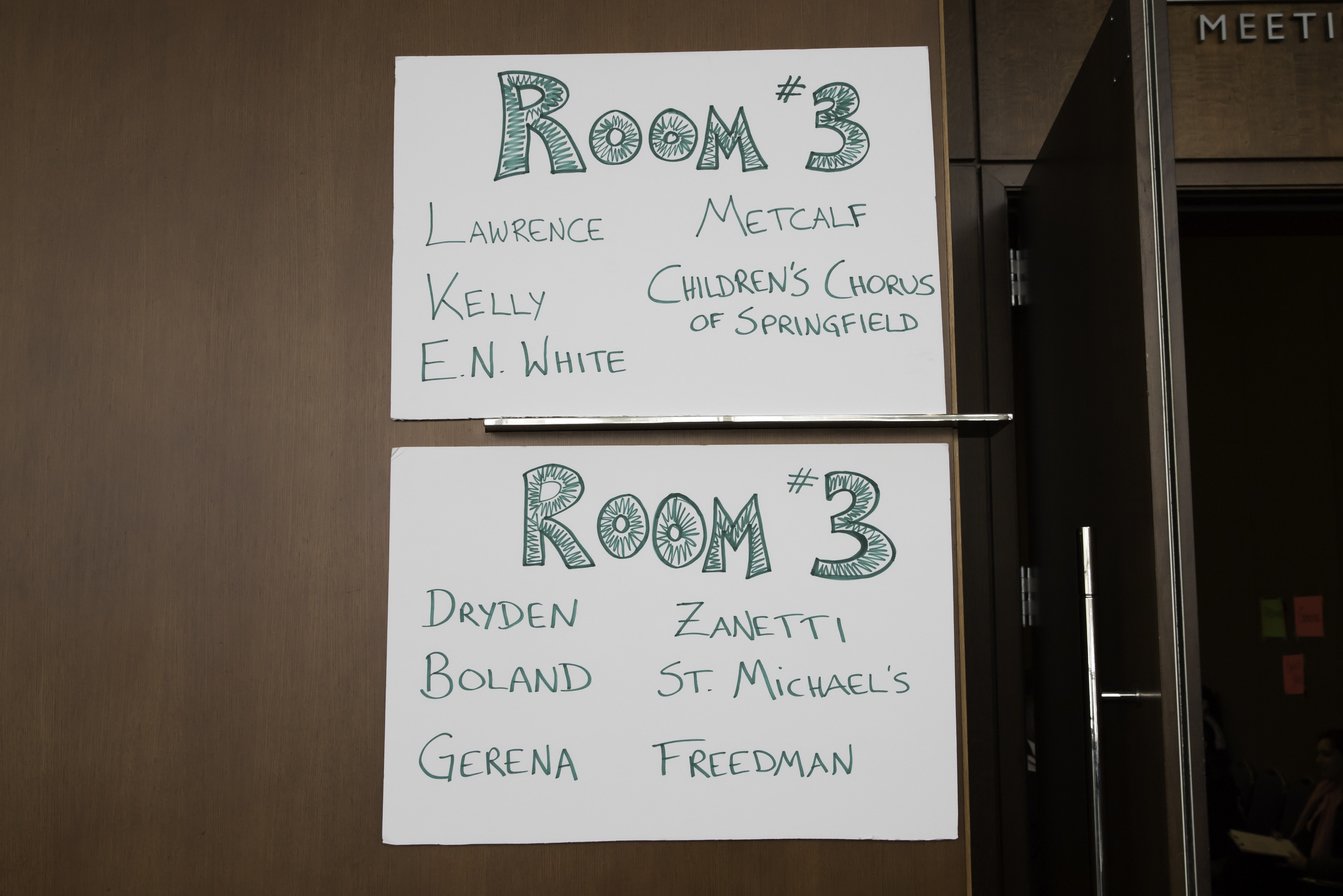 MEETI
ROOM #3
LAWRENCE
KELLY
E.N. WHITE
METCALF
CHILDREN'S CHORUS
OF SPRINGFIELD
ROOM #3
DRYDEN
BOLAND
GERENA
ZANETTI
ST. MICHAEL'S
FREEDMAN